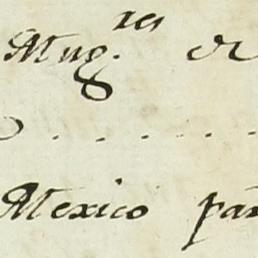 Mug.res de
Mexico par